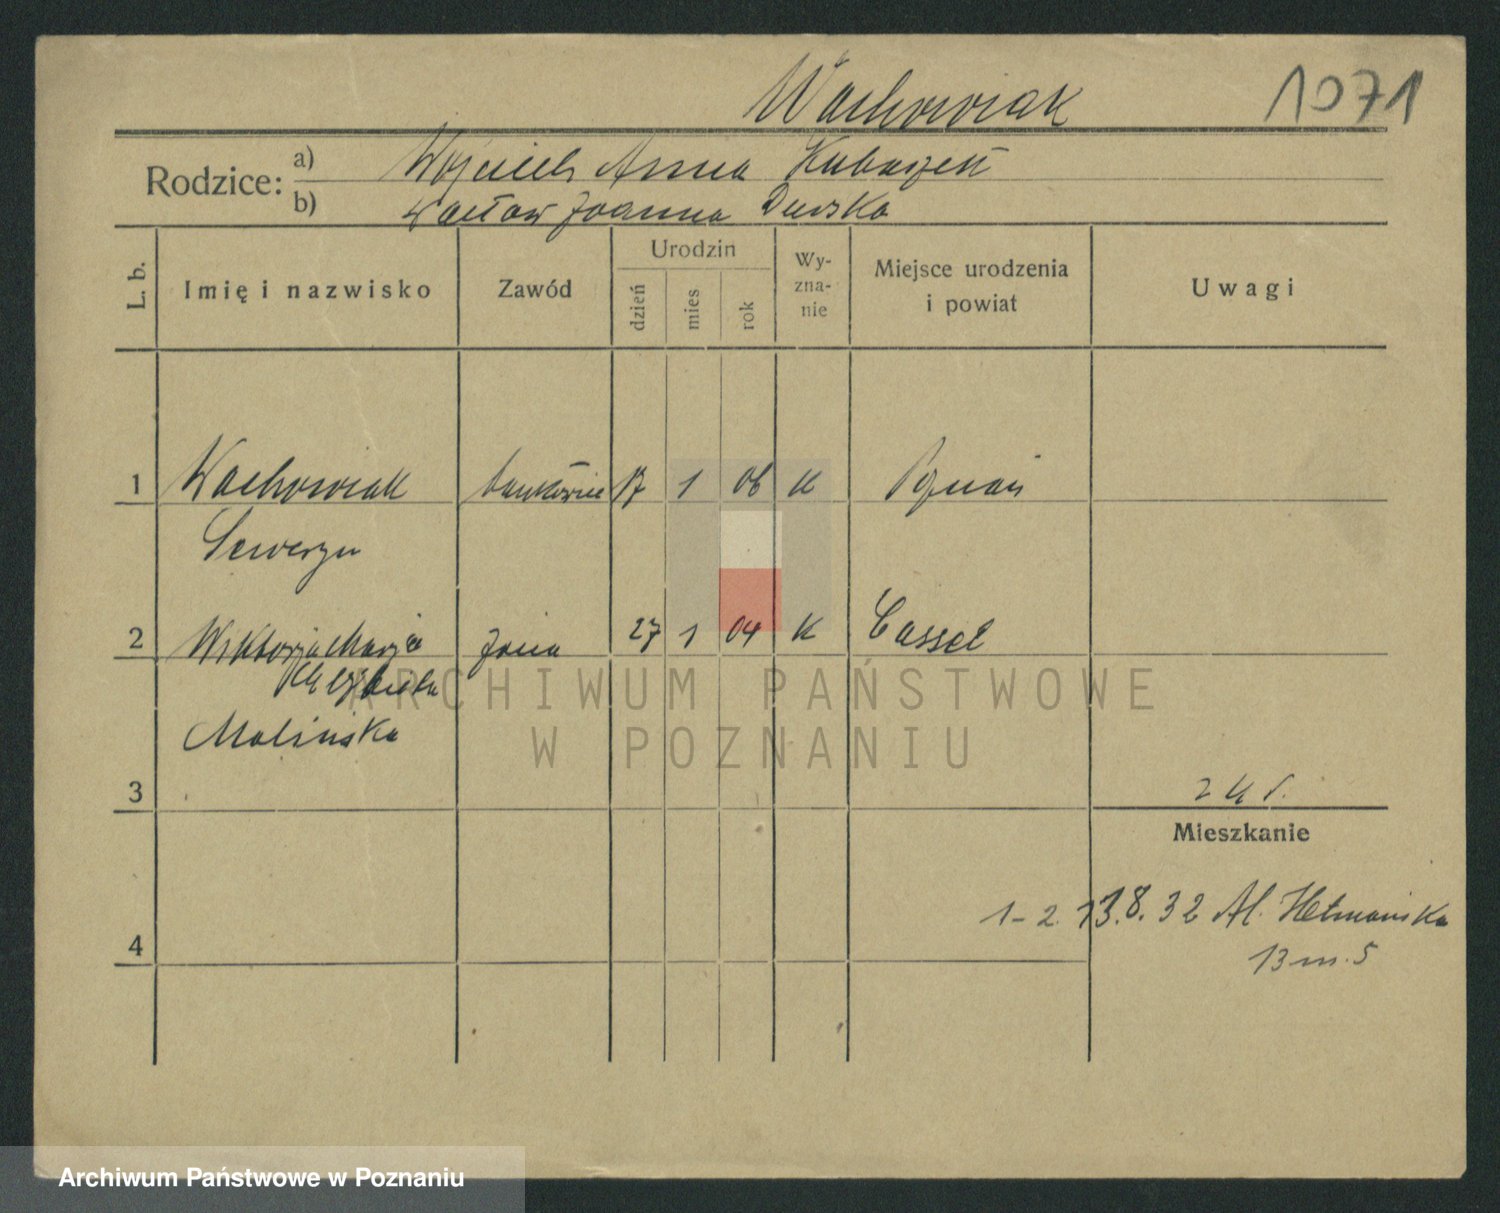 Wachowiak 1071
Rodzice: a) Wojciech Anna Kubaszek
b) Wacław Joanna Durska
L. b. Imię i nazwisko Zawód Urodzin dzień mies rok Wy-zna-nie Miejsce urodzenia i powiat Uwagi
1 Wachowiak 17 1 06 K Poznań
Seweryn
2 Wiktorja Marja żona 27 1 04 K Cassel
Elżbieta
Malińska
ARCHIWUM PAŃSTWOWE
W POZNANIU
3
Mieszkanie
1-2. 13.8.32 Al. Hetmańska
4 13 m. 5
Archiwum Państwowe w Poznaniu